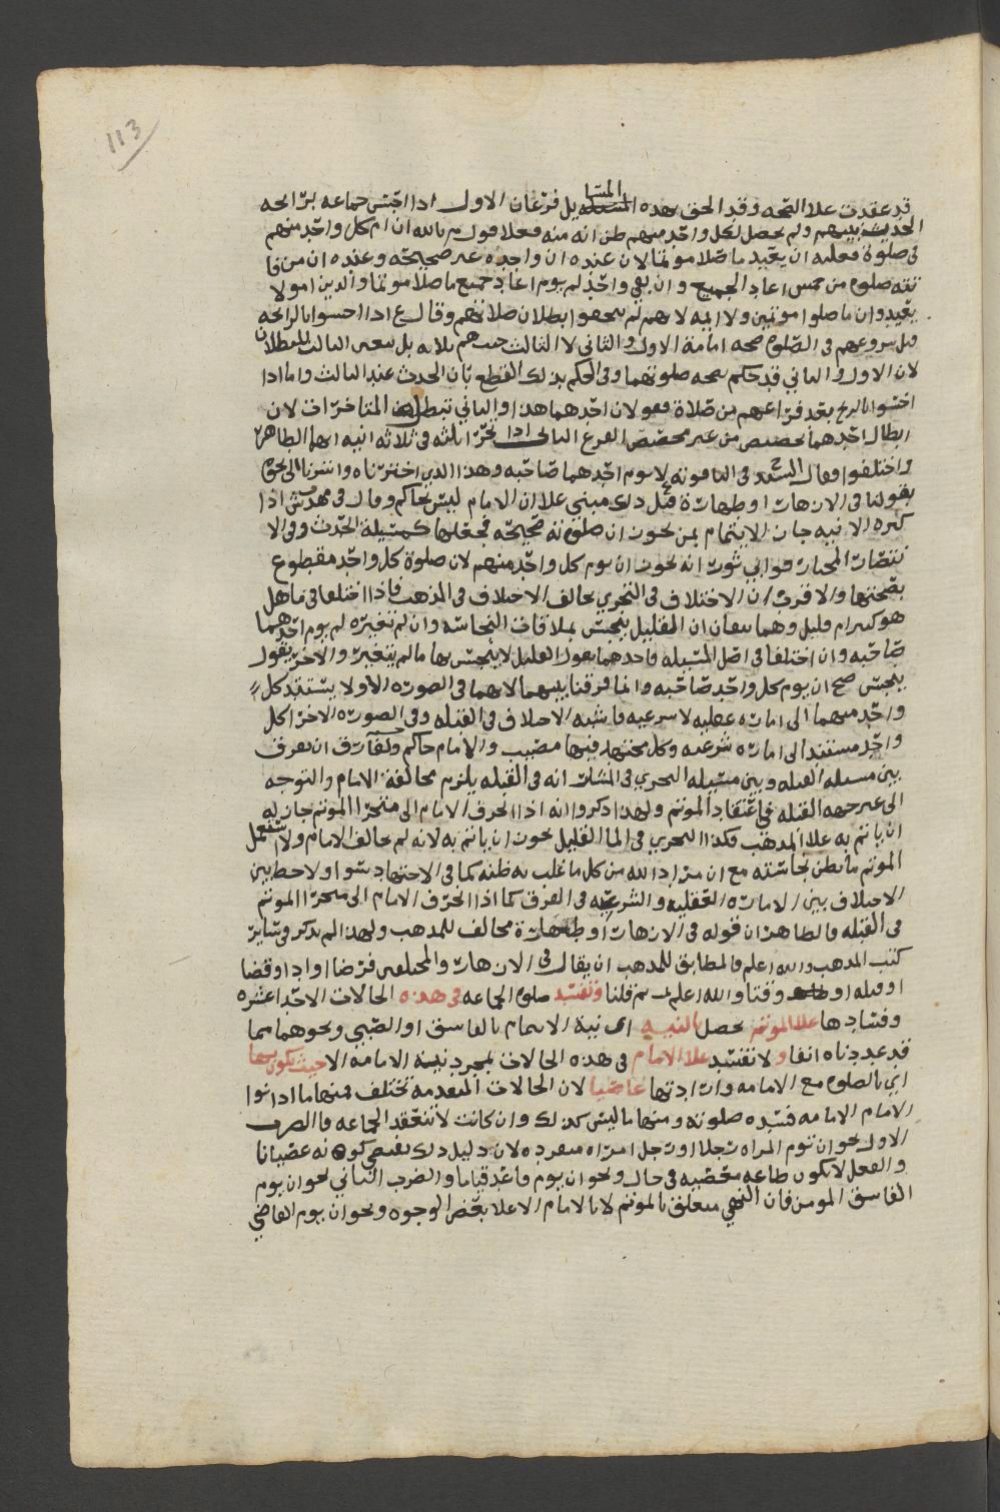 113
المسا
قد عقدت علا الصحه وقد الحق بهذه المسله بل فرعان الاول اذا احس جماعه برائحه
الحدث بينهم ولم يحصل لكل واحد منهم ظن انه منه فعلا قول م بالله ان ام كل واحد منهم
في صلوة فعليه ان يعيد ما صلا موتما لان عنده ان واحده غير صحيحه وعنده ان من فا
تته صلوه من خمس اعاد الجميع وان بقي واحد لم يوم اعاد جميع ما صلا موتما والذين اموا لا
يعيدوا ما صلوا موتمين ولا ايمه لانهم لم يتحققوا بطلان صلاتهم وقال ع اذا احسوا بالرائحه
قبل شروعهم في الصلوة صحه امامة الاول والثاني لا الثالث حيث هم ثلاثه بل يتعين الثالث للبطلان
لان الاول والثاني قد حكم بصحه صلوتهما وفي الحكم بذلك القطع بان الحدث عند الثالث واما اذا
احسوا بالريح بعد فراغهم من صلاة فهو لان احدهما هذا والثاني تبطل المتاخرات لان
ابطال احدهما تخصيص من غير مخصص الفرع الثاني اذا تحرا ثلثه في ثلاثه انيه ايها الطاهر
واختلفوا فقال السيد في التامونه لا يوم احدهما صاحبه وهذا الذي اخترناه واشرنا الى نحوه
بقولنا في الازهار او طهارة قيل ذلك مبني علا ان الامام ليس بحاكم وقال في مهدش اذا
كثره الانيه جاز الايتمام بمن يجوز ان صلوته صحيحه فجعلها كمسيلة الحدث وفي الا
نتصار المختار قوابي ثور انه يجوز ان يوم كل واحد منهم لان صلوة كل واحد مقطوع
بصحتها والاقرب ان الاختلاف في التحري يخالف الاختلاف في المذهب فاذا اختلفا في ما هل
هو كثير ام قليل وهما يتفقان ان القليل ينجس بملاقات النجاسه وان لم تغيره لم يوم احدهما
صاحبه وان اختلفا في اصل المسيله فاحدهما يقول القليل لا ينجس بها ما لم يتغير والاخر يقول
ينجس صح ان يوم كل واحد صاحبه وانما فرقنا بينهما لانهما في الصوره الاولا يستند كل
واحد منهما الى اماره عقليه لا شرعيه فاشبه الاختلاف في القبله وفي الصوره الاخرا كل
واحد مستند الى اماره شرعيه وكل مجتهد فيها مصيب والامام حاكم ولفارق ان يفرق
بين مسيله القبله وبين مسيله التحري في المساله انه في القبله يلزم مخالفة الامام والتوجه
الى غير جهه القبله في اعتقاد الموتم ولهذا ذكروا انه اذا انحرف الامام الى متحرا الموتم جاز له
ان ياتم به علا المذهب فكذا التحري في الما القليل يجوز ان ياتم به لانه لم يخالف الامام ولا استعمل
الموتم ما يظن نجاسته مع ان مراد الله من كل ما غلب به ظنه كما في الاجتهاد سوا ولا حظ بين
الاختلاف بين الاماره العقليه والشرعيه في الفرق كما اذا انحرف الامام الى متحرا الموتم
في القبله فالظاهر ان قوله في الازهار او طهارة مخالف للمذهب ولهذا لم يذكر في ساير
كتب المذهب والله اعلم فالمطابق للمذهب ان يقال في الازهار والمختلفين فرضا او ادا وقضا
او قبله او وقتا والله اعلم ثم قلنا وتفسد صلوة الجماعه في هذه الحالات الاحد اعشره
وفسادها علا الموتم يحصل بالنيه اي نية الايتمام بالفاسق او الصبي ونحوهما مما
قد عددناه انفا ولا تفسد علا الامام في هذه الحالات بمجرد نية الامامه الا حيث يكون بها
اي بالصلوه مع الامامه وارادتها عاصيا لان الحالات المتقدمه تختلف فمنها ما اذا نوا
الامام الامامه فسده صلوته ومنها ما ليس كذلك وان كانت لا تنعقد الجماعه فالضرب
الاول نحو ان توم المراه رجلا او رجل امراه منفرده لان دليل ذلك يقتضي كونه عصيانا
والفعل لا يكون طاعه معصيه في حال ونحو ان يوم قاعد قياما والضرب الثاني نحو ان يوم
الفاسق المومن فان النهي متعلق بالموتم لا بالامام الا علا بعض الوجوه ونحو ان يوم القاضي